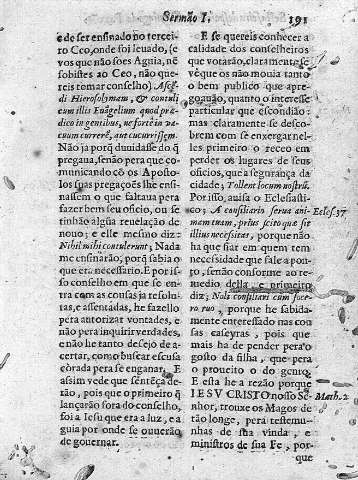 Sermão I. 191
e de ser ensinado no tercei-
ro Ceo, onde foi leuado, (e
vos que não soes Aguia, nē
sobistes ao Ceo, não que-
reis tomar conselho) Ascē-
di Hierosolymam, & contuli
cum illis Euāgelium quod præ-
dico in gentibus, ne forte in va-
cuum currerē, aut cucurrissem.
Não ja porq̃ duuidasse do q̃
pregaua, senão pera que co-
municando cō os Aposto-
los suas pregações lhe ensi-
nassem o que faltaua pera
fazer bem seu officio, ou se
tinhão algũa reuelação de
nouo; e elle mesmo diz:
Nihil mihi contulerunt; Nada
me ensinarão, porq̃ sabia o
que era necessario. E por is-
so conselho em que se en-
tra com as cousas ja resolu-
tas, e assentadas, he fazello
pera autorizar vontades, e
não pera inquirir verdades,
e não he tanto desejo de a-
certar, como buscar escusa
corada pera se enganar. E
assim vede que sentēça de-
rão, pois que o primeiro q̃
lançarão fora do conselho,
foi a Iesu que era a luz, e a
guia por onde se ouuerão
de gouernar.
E se quereis conhecer a
calidade dos conselheiros
que votarão, claramente se
vè que os não mouia tanto
o bem publico que apre-
goauão, quanto o interesse
particular que escondião:
mas claramente se desco-
brem com se enxergar nel-
les primeiro o receo em
perder os lugares de seus
officios, que a segurança da
cidade; Tollent locum nostrũ.
Por isso, auisa o Ecclesiasti-
co; A consiliario serua ani-
mam tuam, prius scito quæ sit
illius necessitas, porque não
ha que fiar em quem tem
necessidade que fale a pon-
to, senão conforme ao re-
medio della, e primeiro
diz; Noli consiliari cum soce-
ro tuo, porque he sabida-
mente enteressado nas cou-
sas caseyras, pois que
mais ha de pender pera o
gosto da filha, que pera
o proueito o do genro.
E esta he a rezão porque
IESV CRISTO nosso Se-
nhor, trouxe os Magos de
tão longe, pera testemu-
nhas de sua vinda, e
ministros de sua Fe, por-
que
Eccles. 37
Math. 2